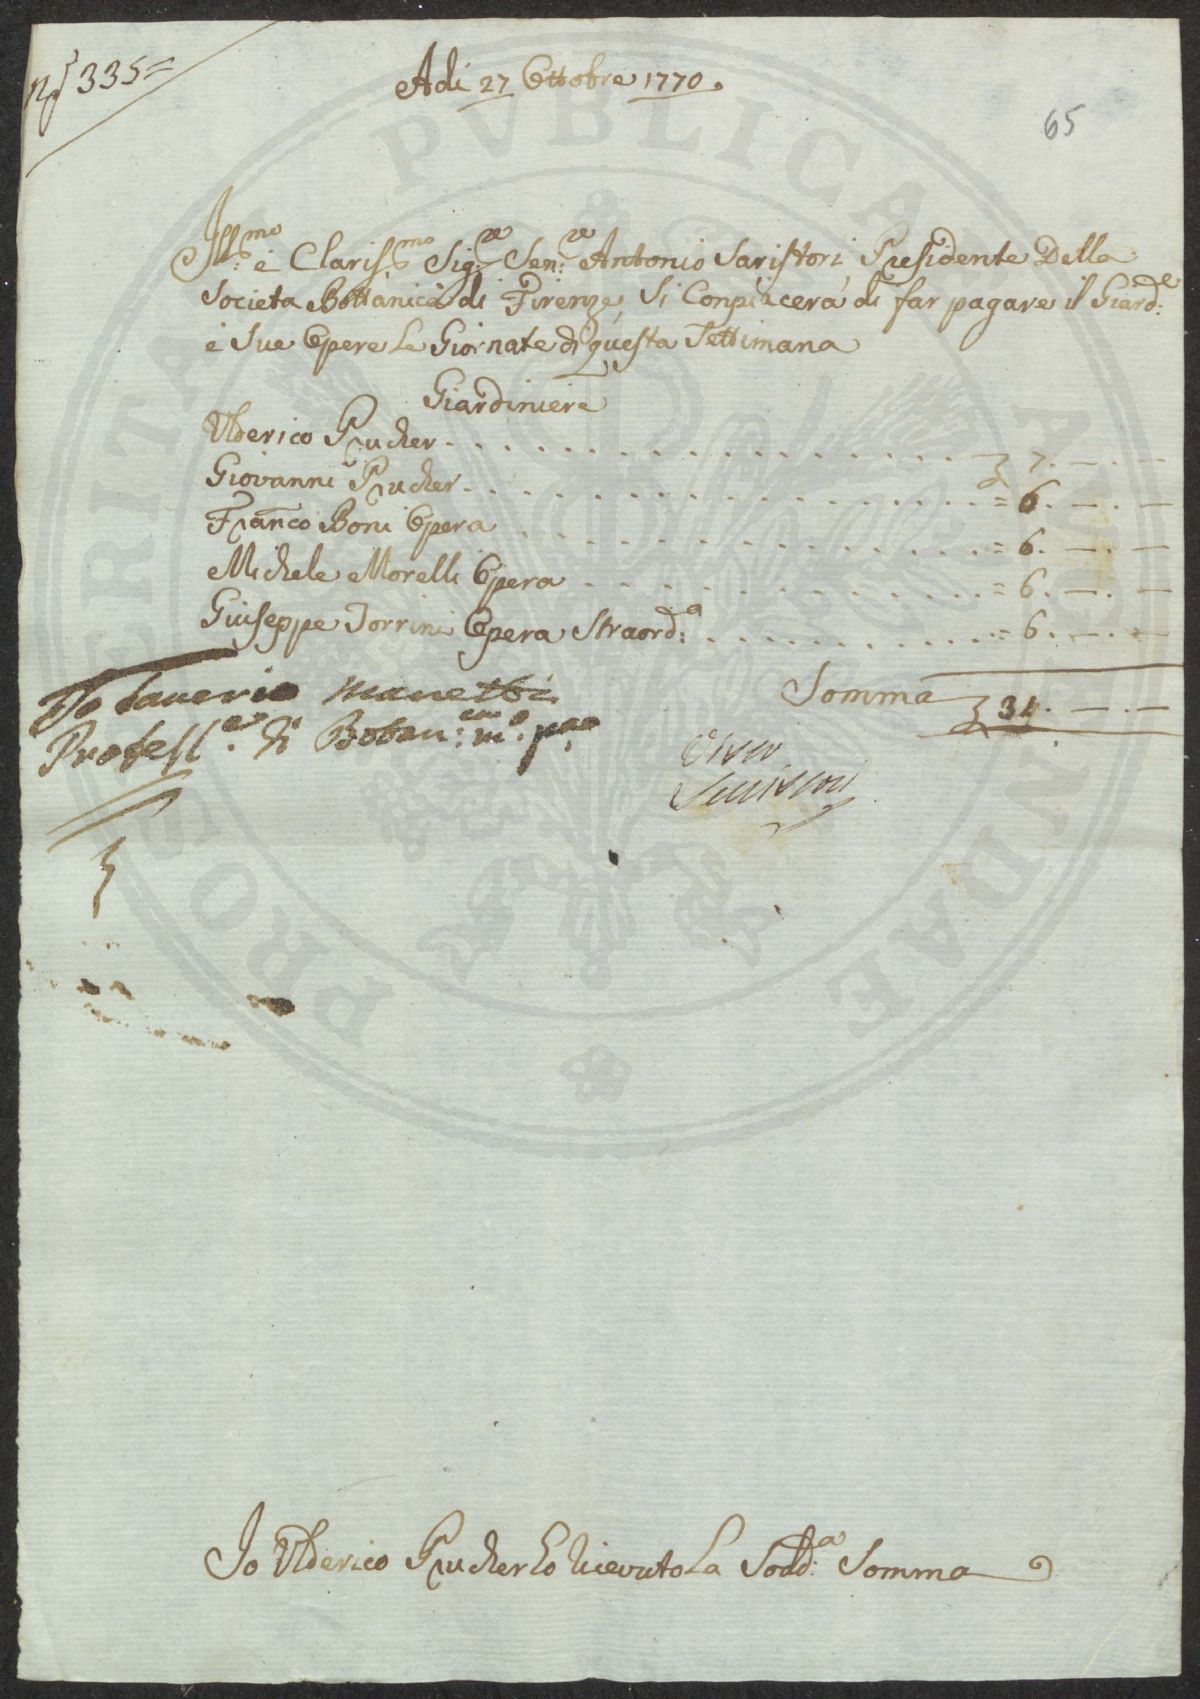 N.º 335=
Adi 27 Ottobre 1770.
65
Ill:mo è Clariss:mo Sig:re Sen:re Antonio Saristori Presidente Della
Societa Bottanica di Firenze, Si Conpiacerà di far pagare il Giard:e
è Sue Opere Le Giornate di questa Settimana
Giardiniere
Ulderico Prucher - - - - 7. — . —
Giovanni Prucher - - - - = 6. — . —
Franco Boni Opera - - - - = 6. — . —
Michele Morelli Opera - - - - = 6. — . —
Giuseppe Torrini Opera Straord:a - - - - = 6. — . —
Somma 31. — . —
Io Saverio Manetti
Profess:e di Botan:
Io Ulderico Prucher ho ricevuto La Sodd:a Somma
PROSPERITATI PVBLICAE AVGENDAE